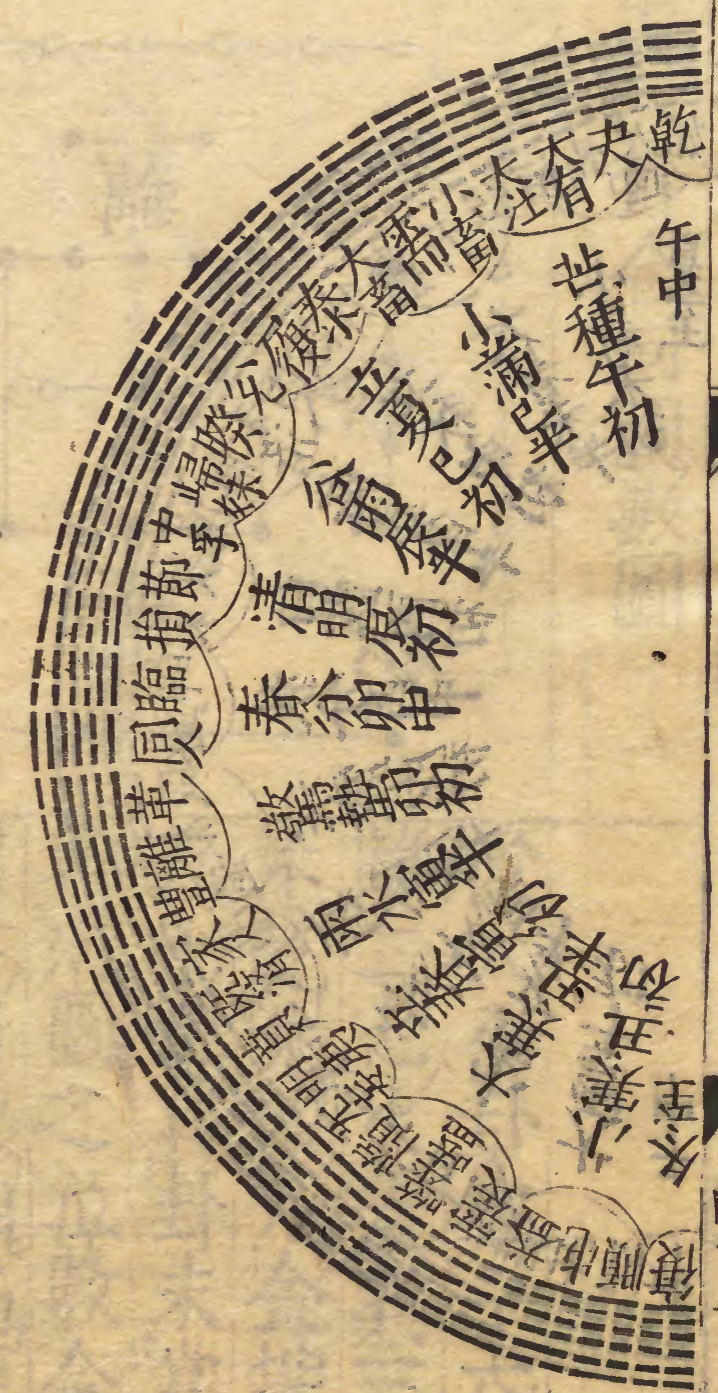 乾
夬
大有
大壮
小畜
需
大畜
泰
履
兌
睽
歸妹
中孚
節
損
臨
同人
革
離
豐
家人
既濟
賁
明夷
无妄
隨
噬嗑
震
益
屯
頤
復
午中
芒種午初
小滿巳半
立夏巳初
谷雨辰半
清明辰初
春分卯中
驚蟄卯初
雨水寅半
立春寅初
大寒丑半
小寒丑初
冬至